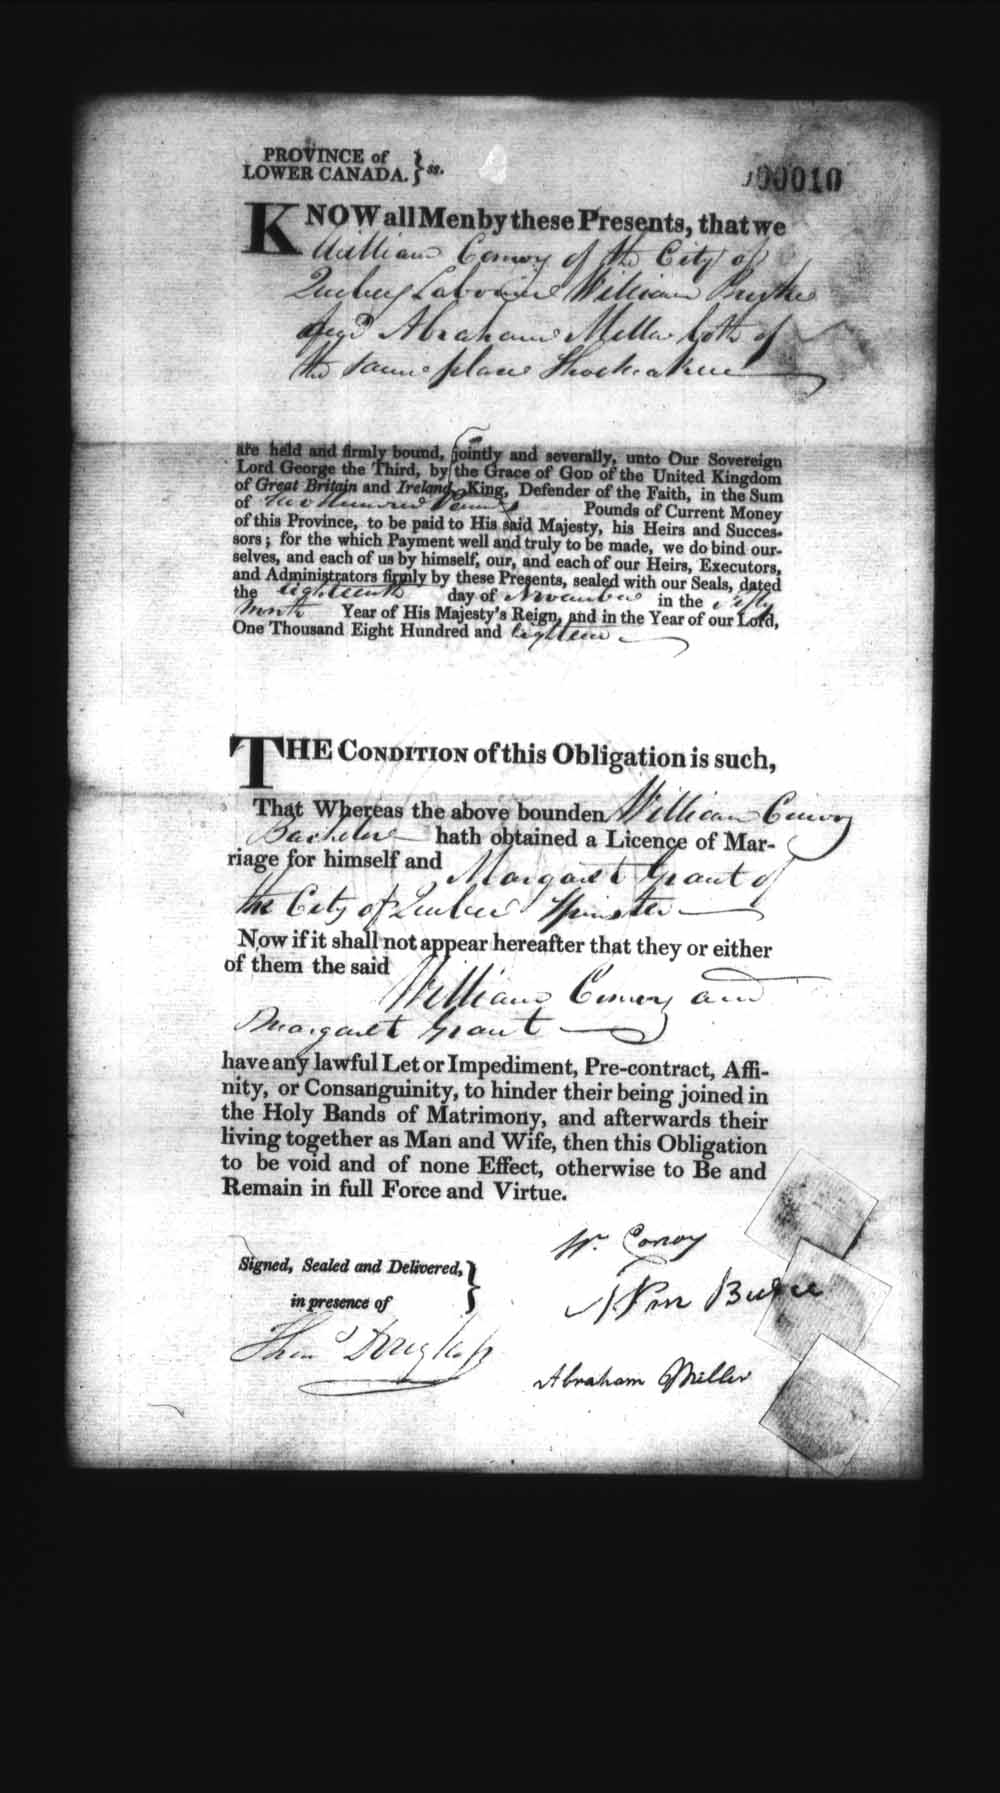 PROVINCE of
LOWER CANADA. } ss.
00010
KNOW all Men by these Presents, that we
William Conroy of the City of
Quebec Labourer William
and Abraham Miller both of
the same place
are held and firmly bound, jointly and severally, unto Our Sovereign
Lord George the Third, by the Grace of GOD of the United Kingdom
of Great Britain and Ireland, King, Defender of the Faith, in the Sum
of Two Hundred Pounds Pounds of Current Money
of this Province, to be paid to His said Majesty, his Heirs and Succes-
sors; for the which Payment well and truly to be made, we do bind our-
selves, and each of us by himself, our, and each of our Heirs, Executors,
and Administrators firmly by these Presents, sealed with our Seals, dated
the eighteenth day of November in the fifty
ninth Year of His Majesty's Reign, and in the Year of our Lord,
One Thousand Eight Hundred and eighteen
THE CONDITION of this Obligation is such,
That Whereas the above bounden William Conroy
Bachelor hath obtained a Licence of Mar-
riage for himself and Margaret Grant of
the City of Quebec Spinster
Now if it shall not appear hereafter that they or either
of them the said William Conroy and
Margaret Grant
have any lawful Let or Impediment, Pre-contract, Affi-
nity, or Consanguinity, to hinder their being joined in
the Holy Bands of Matrimony, and afterwards their
living together as Man and Wife, then this Obligation
to be void and of none Effect, otherwise to Be and
Remain in full Force and Virtue.
Signed, Sealed and Delivered, }
in presence of
Thos Douglass
Wm. Conroy
Wm
Abraham Miller